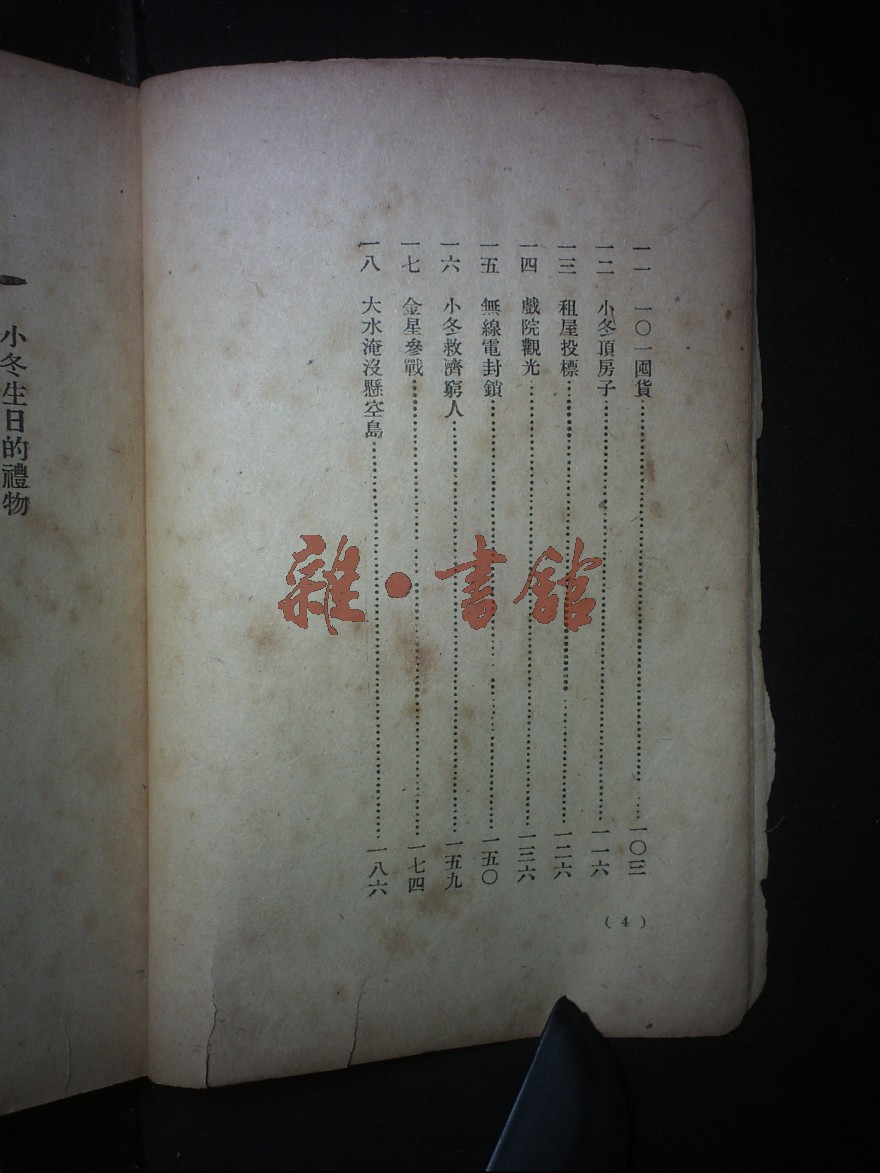 一一　一〇一囤貨……一〇三
一二　小冬頂房子……一一六
一三　租屋投標……一二六
一四　戲院觀光……一三六
一五　無線電封鎖……一五〇
一六　小冬救濟窮人……一五九
一七　金星參戰……一七四
一八　大水淹沒懸空島……一八六
(4)
一　小冬生日的禮物
雜·書館